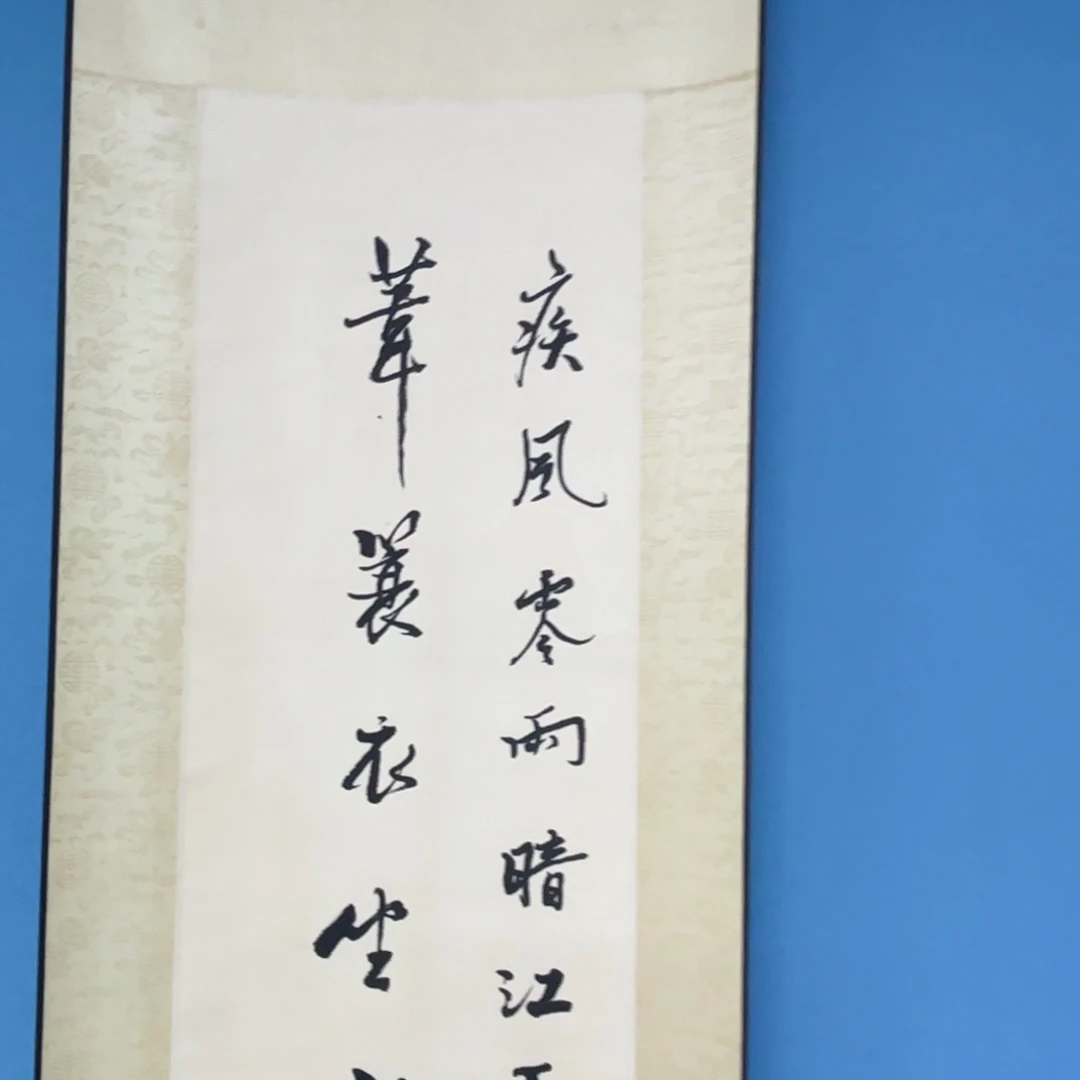 疾風零雨暗江
葦蓑衣坐